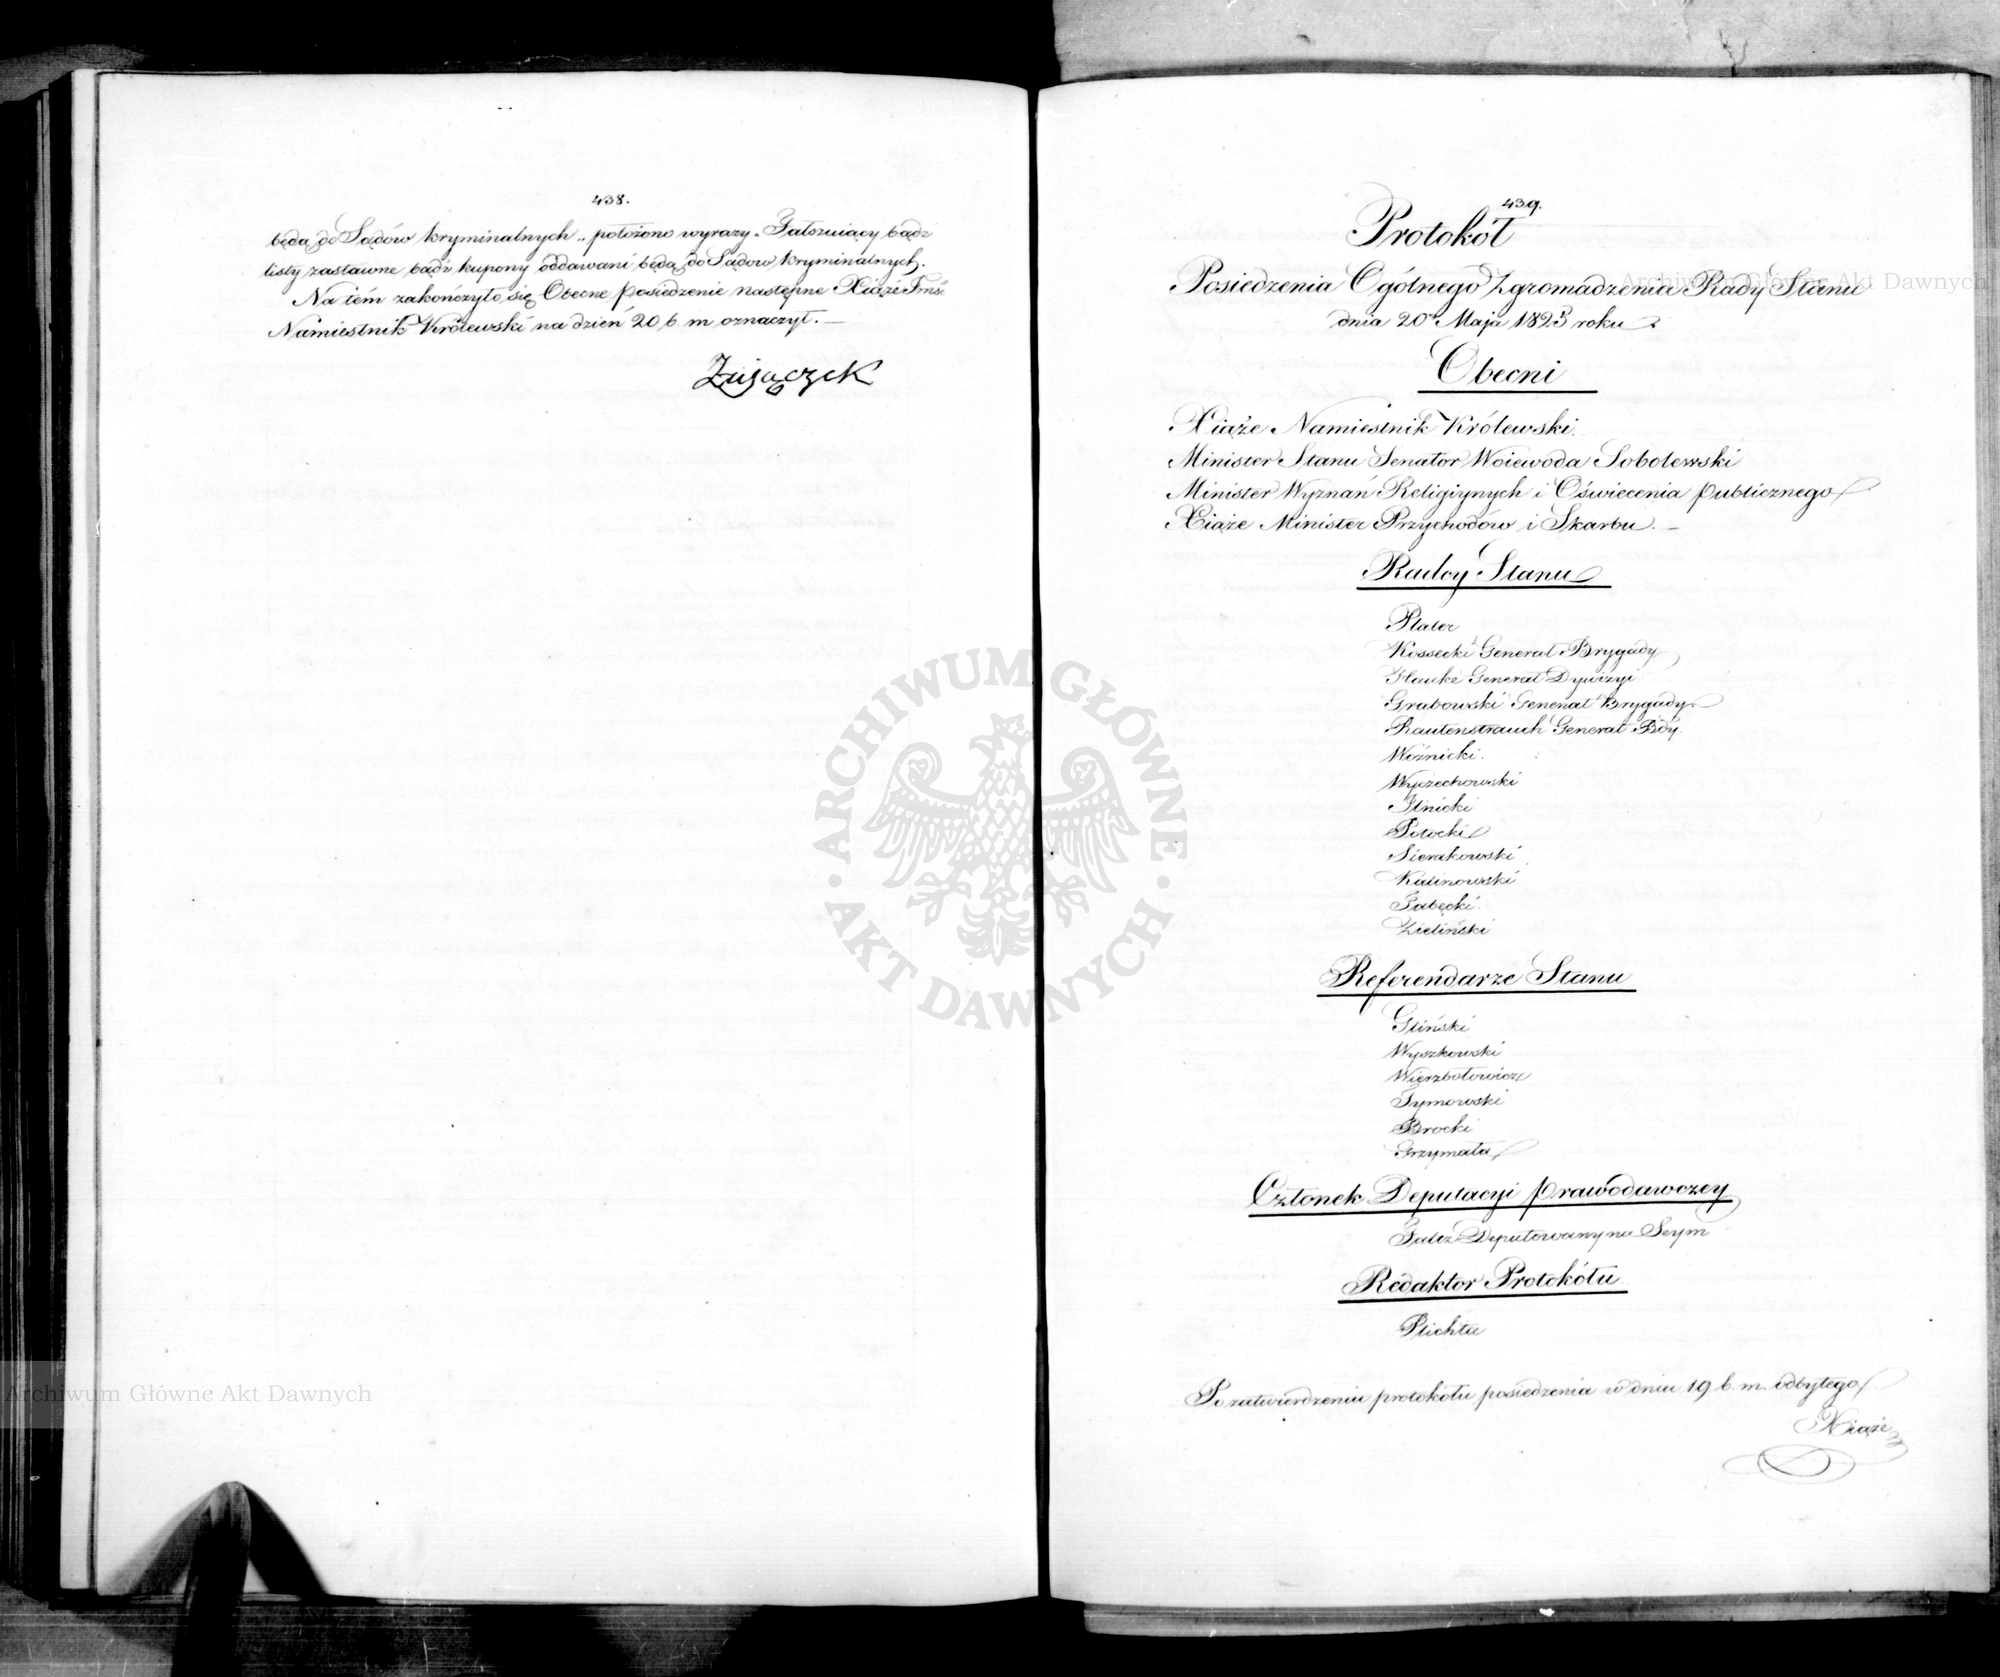 438.
będą do Sądów kryminalnych „ położono wyrazy „ Fałszuiący bądź
listy zastawne bądź kupony oddawani będą do Sądow kryminalnych.
Na tém zakończyło się Obecne posiedzenie następne Xiąże Jmść
Namiestnik Królewski na dzień 20 b. m oznaczył. —
Zajączek
439.
Protokół
Posiedzenia Ogólnego Zgromadzenia Rady Stanu
dnia 20 Maja 1823 roku
Obecni
Xiąże Namiestnik Królewski.
Minister Stanu Senator Woiewoda Sobolewski
Minister Wyznań Religiynych i Oświecenia publicznego
Xiąże Minister Przychodów i Skarbu. —
Radcy Stanu
Plater
Kossecki Generał Brygady
Hauke Generał Dywizyi
Grabowski Generał Brygady
Rautenstrauch Generał Bdy.
Woźnicki.
Wyczechowski
Ilnicki
Potocki
Sierakowski
Kalinowski
Zielinski
Referendarze Stanu
Gliński
Wyszkowski
Wierzbołowicz
Tymowski
Brocki
Grzymała
Członek Deputacyi prawodawczey
Faltz Deputowany na Seym
Redaktor Protokółu
Plichta
Po zatwierdzeniu protokółu posiedzenia w dniu 19 b. m. odbytego
Xiąże
ARCHIWUM GŁÓWNE
AKT DAWNYCH
Archiwum Główne Akt Dawnych
Archiwum Główne Akt Dawnych